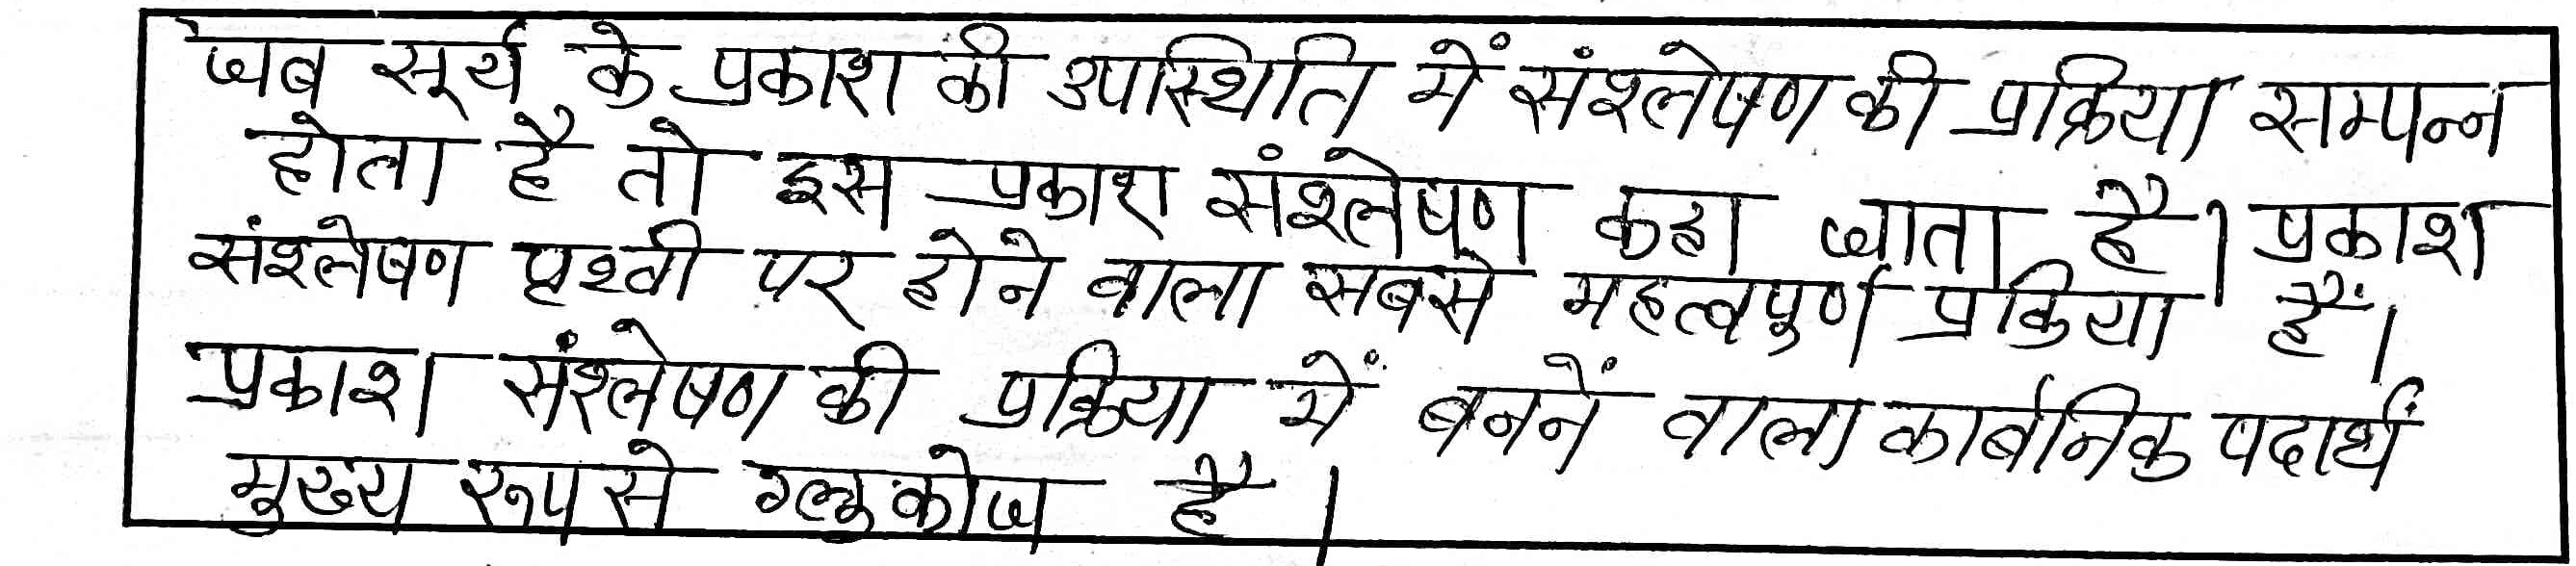 जब सूर्य के प्रकाश की उपस्थिति में संश्लेषण की प्रक्रिया सम्पन्न
होता है तो इस प्रकाश संश्लेषण कहा जाता है। प्रकाश
संश्लेषण पृथ्वी पर होने वाला सबसे महत्वपुर्ण प्रक्रिया हैं।
प्रकाश संश्लेषण की प्रक्रिया में बननें वाला कार्बनिक पदार्थ
मुख्य रूप से ग्लुकोज है।